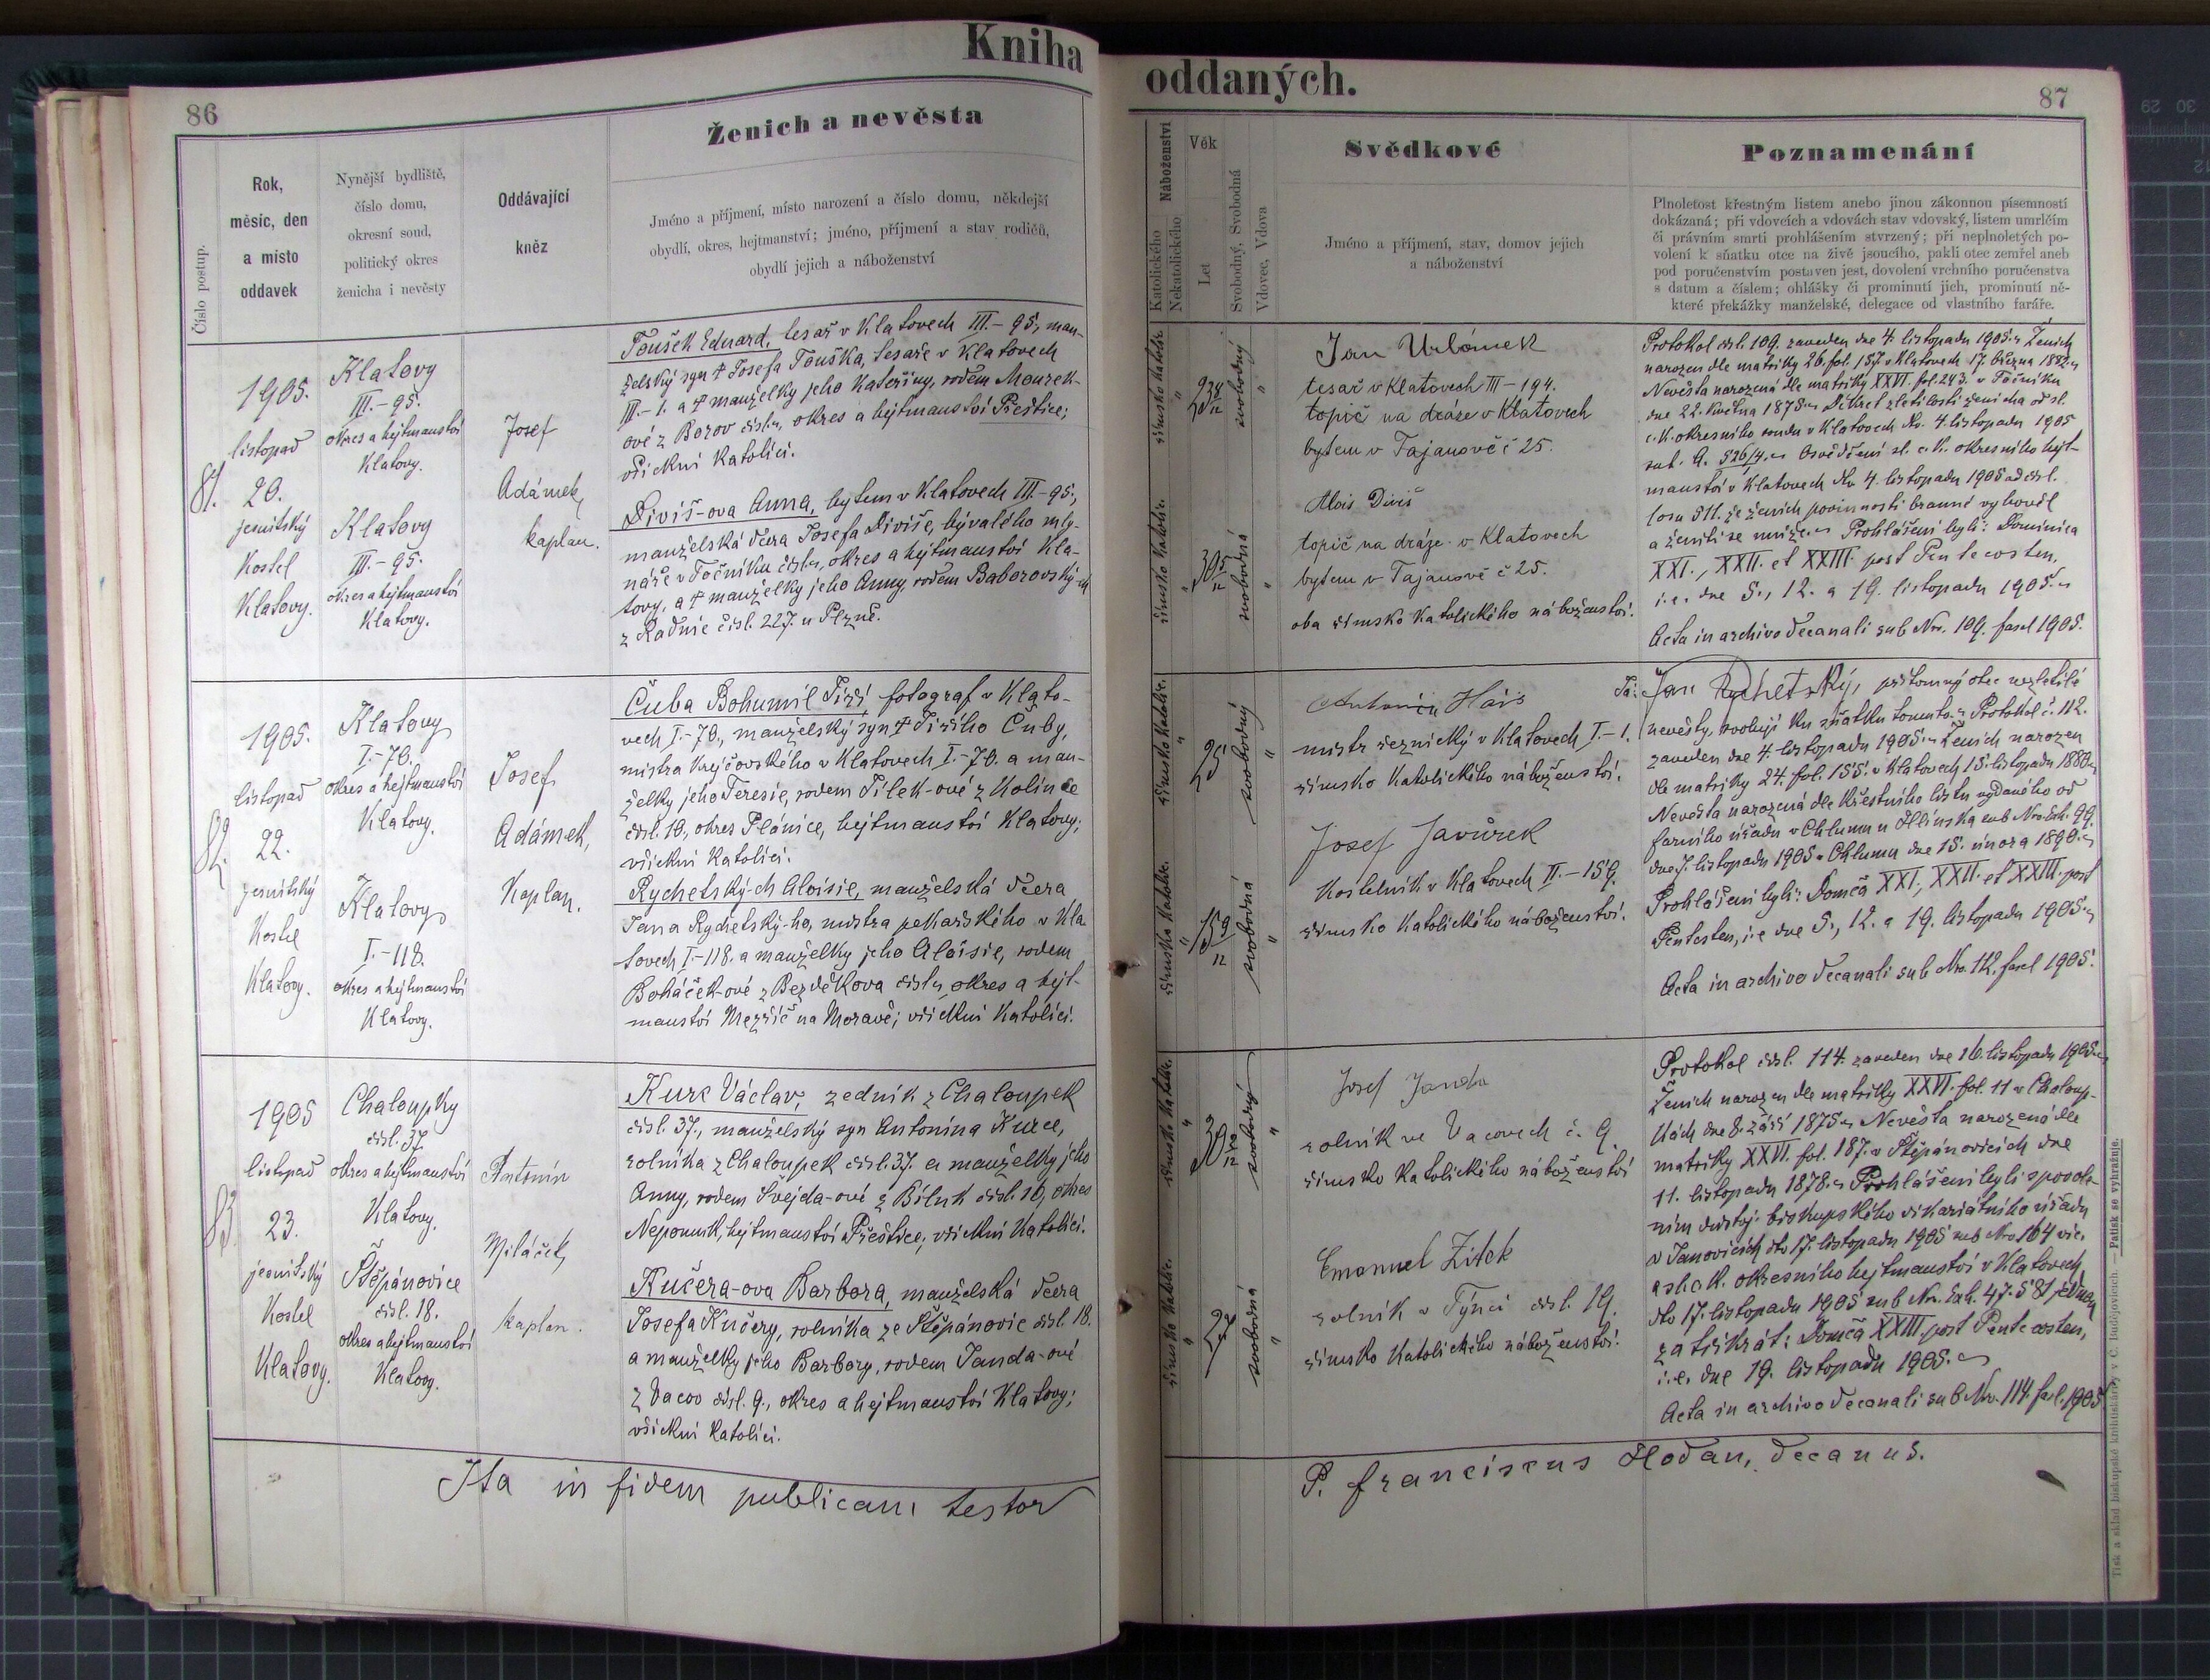 Kniha
86
Číslo postup.
Rok,
měsíc, den
a místo
oddavek
Nynější bydliště,
číslo domu,
okresní soud,
politický okres
ženicha i nevěsty
Oddávající
kněz
Ženich a nevěsta
Jméno a příjmení, místo narození a číslo domu, někdejší
obydlí, okres, hejtmanství; jméno, příjmení a stav rodičů,
obydlí jejich a náboženství
81.
1905.
listopad
20.
jesuitský
kostel
Klatovy.
Klatovy
III.-95.
okres a hejtmanství
Klatovy.
Klatovy
III.-95.
okres a hejtmanství
Klatovy.
Josef
Adámek,
kaplan.
Toušek Eduard, tesař v Klatovech III.-95, man-
želský syn † Josefa Touška, tesaře v Klatovech
III.-1. a † manželky jeho Kateřiny, rodem Mourek-
ové z Borov čísl. , okres a hejtmanství Přeštice;
všickni katolíci.
Diviš-ova Anna, bytem v Klatovech III.-95,
manželská dcera Josefa Diviše, bývalého mly-
náře v Točníku čísl. , okres a hejtmanství Kla-
tovy, a † manželky jeho Anny, rodem Baborovský-ch
z Radnic čísl. 227. u Plzně.
82.
1905.
listopad
22.
jesuitský
kostel
Klatovy.
Klatovy
I.-70.
okres a hejtmanství
Klatovy.
Klatovy
I.-118.
okres a hejtmanství
Klatovy.
Josef
Adámek,
kaplan.
Čuba Bohumil Jiří, fotograf v Klato-
vech I.-70., manželský syn † Jiřího Čuby,
mistra krejčovského v Klatovech I.-70. a man-
želky jeho Teresie, rodem Jílek-ové z Kolince
čísl. 10., okres Plánice, hejtmanství Klatovy;
všickni katolíci.
Rychetský-ch Aloisie, manželská dcera
Jana Rychetský-ho, mistra pekařského v Kla
tovech, I.-118. a manželky jeho Aloisie, rodem
Boháček-ové z Bezděkova čísl. , okres a hejt-
manství Meziříč na Moravě; všickni katolíci.
83.
1905
listopad
23.
jesuitský
kostel
Klatovy.
Chaloupky
čísl. 37.
okres a hejtmanství
Klatovy.
Štěpánovice
čísl. 18.
okres a hejtmanství
Klatovy.
Antonín
Miláček,
kaplan.
Kurc Václav, zedník z Chaloupek
čísl. 37., manželský syn Antonína Kurce,
rolníka z Chaloupek čísl. 37. a manželky jeho
Anny, rodem Švejda-ové z Bíluk čísl. 16, okres
Nepomuk, hejtmanství Přeštice; všickni katolíci.
Kučera-ova Barbora, manželská dcera
Josefa Kučery, rolníka ze Štěpánovic čísl. 18.
a manželky jeho Barbory, rodem Janda-ové
z Vacov čísl. 9., okres a hejtmanství Klatovy;
všickni katolíci.
Ita in fidem publicam testor
oddaných.
87
Náboženství
Katolického
Nekatolického
Věk
Let
Svobodný, Svobodná
Vdovec, Vdova
Svědkové
Jméno a příjmení, stav, domov jejich
a náboženství
Poznamenání
Plnoletost křestným listem anebo jinou zákonnou písemností
dokázaná; při vdovcích a vdovách stav vdovský, listem umrlčím
či právním smrti prohlášením stvrzený; při neplnoletých po-
volení k sňatku otce na živě jsoucího, pakli otec zemřel aneb
pod poručenstvím postaven jest, dovolení vrchního poručenstva
s datum a číslem; ohlášky či prominutí jich, prominutí ně-
které překážky manželské, delegace od vlastního faráře.
římsko katolic.
23 8/12
svobodný
římsko katolic.
30 5/12
svobodná
Jan Urbánek
tesař v Klatovech III-194.
topič na dráze v Klatovech
bytem v Tajanově č 25.
Alois Diviš
topič na dráze v Klatovech
bytem v Tajanově č 25.
oba římsko katolického náboženství.
Protokol čísl. 109. zaveden dne 4. listopadu 1905. Ženich
narozen dle matriky 26. fol. 157 v Klatovech 17. března 1882.
Nevěsta narozená dle matriky XXVI. fol. 243. v Točníku
dne 22. května 1875. Dekret zletilosti ženicha od sl.
c. k. okresního soudu v Klatovech dto. 4. listopadu 1905
sub. A. 526/4. Osvědčení sl. c. k. okresního hejt-
manství v Klatovech dto 4. listopadu 1905 ad čísl.
losu 511. že ženich povinnosti branné vyhověl
a ženiti se může. Prohlášeni byli: Dominica
XXI., XXII. et XXIII. post Pentecosten,
i. e. dne 5., 12. a 19. listopadu 1905.
Acta in archivo decanali sub Nro. 109. fasc 1905.
římsko katolic.
25
svobodný
římsko katolic.
15 9/12
svobodná
Antonín Hais
mistr řeznický v Klatovech I.-1.
římsko katolického náboženství.
Josef Javůrek
kostelník v Klatovech II.-159.
římsko katolického náboženství.
Já: Jan Rychetský, přítomný otec nezletilé
nevěsty, svoluji ku sňatku tomuto. Protokol č. 112.
zaveden dne 4. listopadu 1905. Ženich narozen
dle matriky 24. fol. 155. v Klatovech 15. listopadu 1880.
Nevěsta narozená dle křestního listu vydaného od
farního úřadu v Chlumu u Hlinska sub Nro. Exh. 99.
dne 7. listopadu 1905 v Chlumu dne 15. února 1890.
Prohlášeni byli: Domca XXI., XXII. et XXIII. post
Pentcsten, i. e dne 5., 12. a 19. listopadu 1905.
Acta in archivo decanali sub Nro. 112. fascl 1905.
římsko katolic.
30
svobodný
římsko katolic.
27
svobodná
Josef Janda
rolník ve Vacovech č. 9.
římsko katolického náboženství
Emanuel Zítek
rolník v Týnci čísl. 19.
římsko katolického náboženství.
Protokol čísl. 114. zaveden dne 16. listopadu 1905.
Ženich narozen dle matriky XXVI. fol. 11 v Chaloup-
kách dne 8. září 1875. Nevěsta narozená dle
matriky XXVI. fol. 187. v Štěpánovicích dne
11. listopadu 1878. Prohlášeni byli s povole-
ním důstoj. biskupského vikariátního úřadu
v Janovicích dto 17. listopadu 1905 sub Nro 164 vic.
a sl. c. k. okresního hejtmanství v Klatovech
dto 17. listopadu 1905 sub Nro. Exh. 47.581 jednou
za třikrát: Domca XXIII. post Pentecosten,
i. e. dne 19. listopadu 1905.
Acta in archivo decanali sub Nro. 114. fasc. 1905
P. Franciscus Hodan, decanus.
Tisk a sklad biskupské knihtiskárny v Č. Budějovicích. — Patisk se vyhražuje.